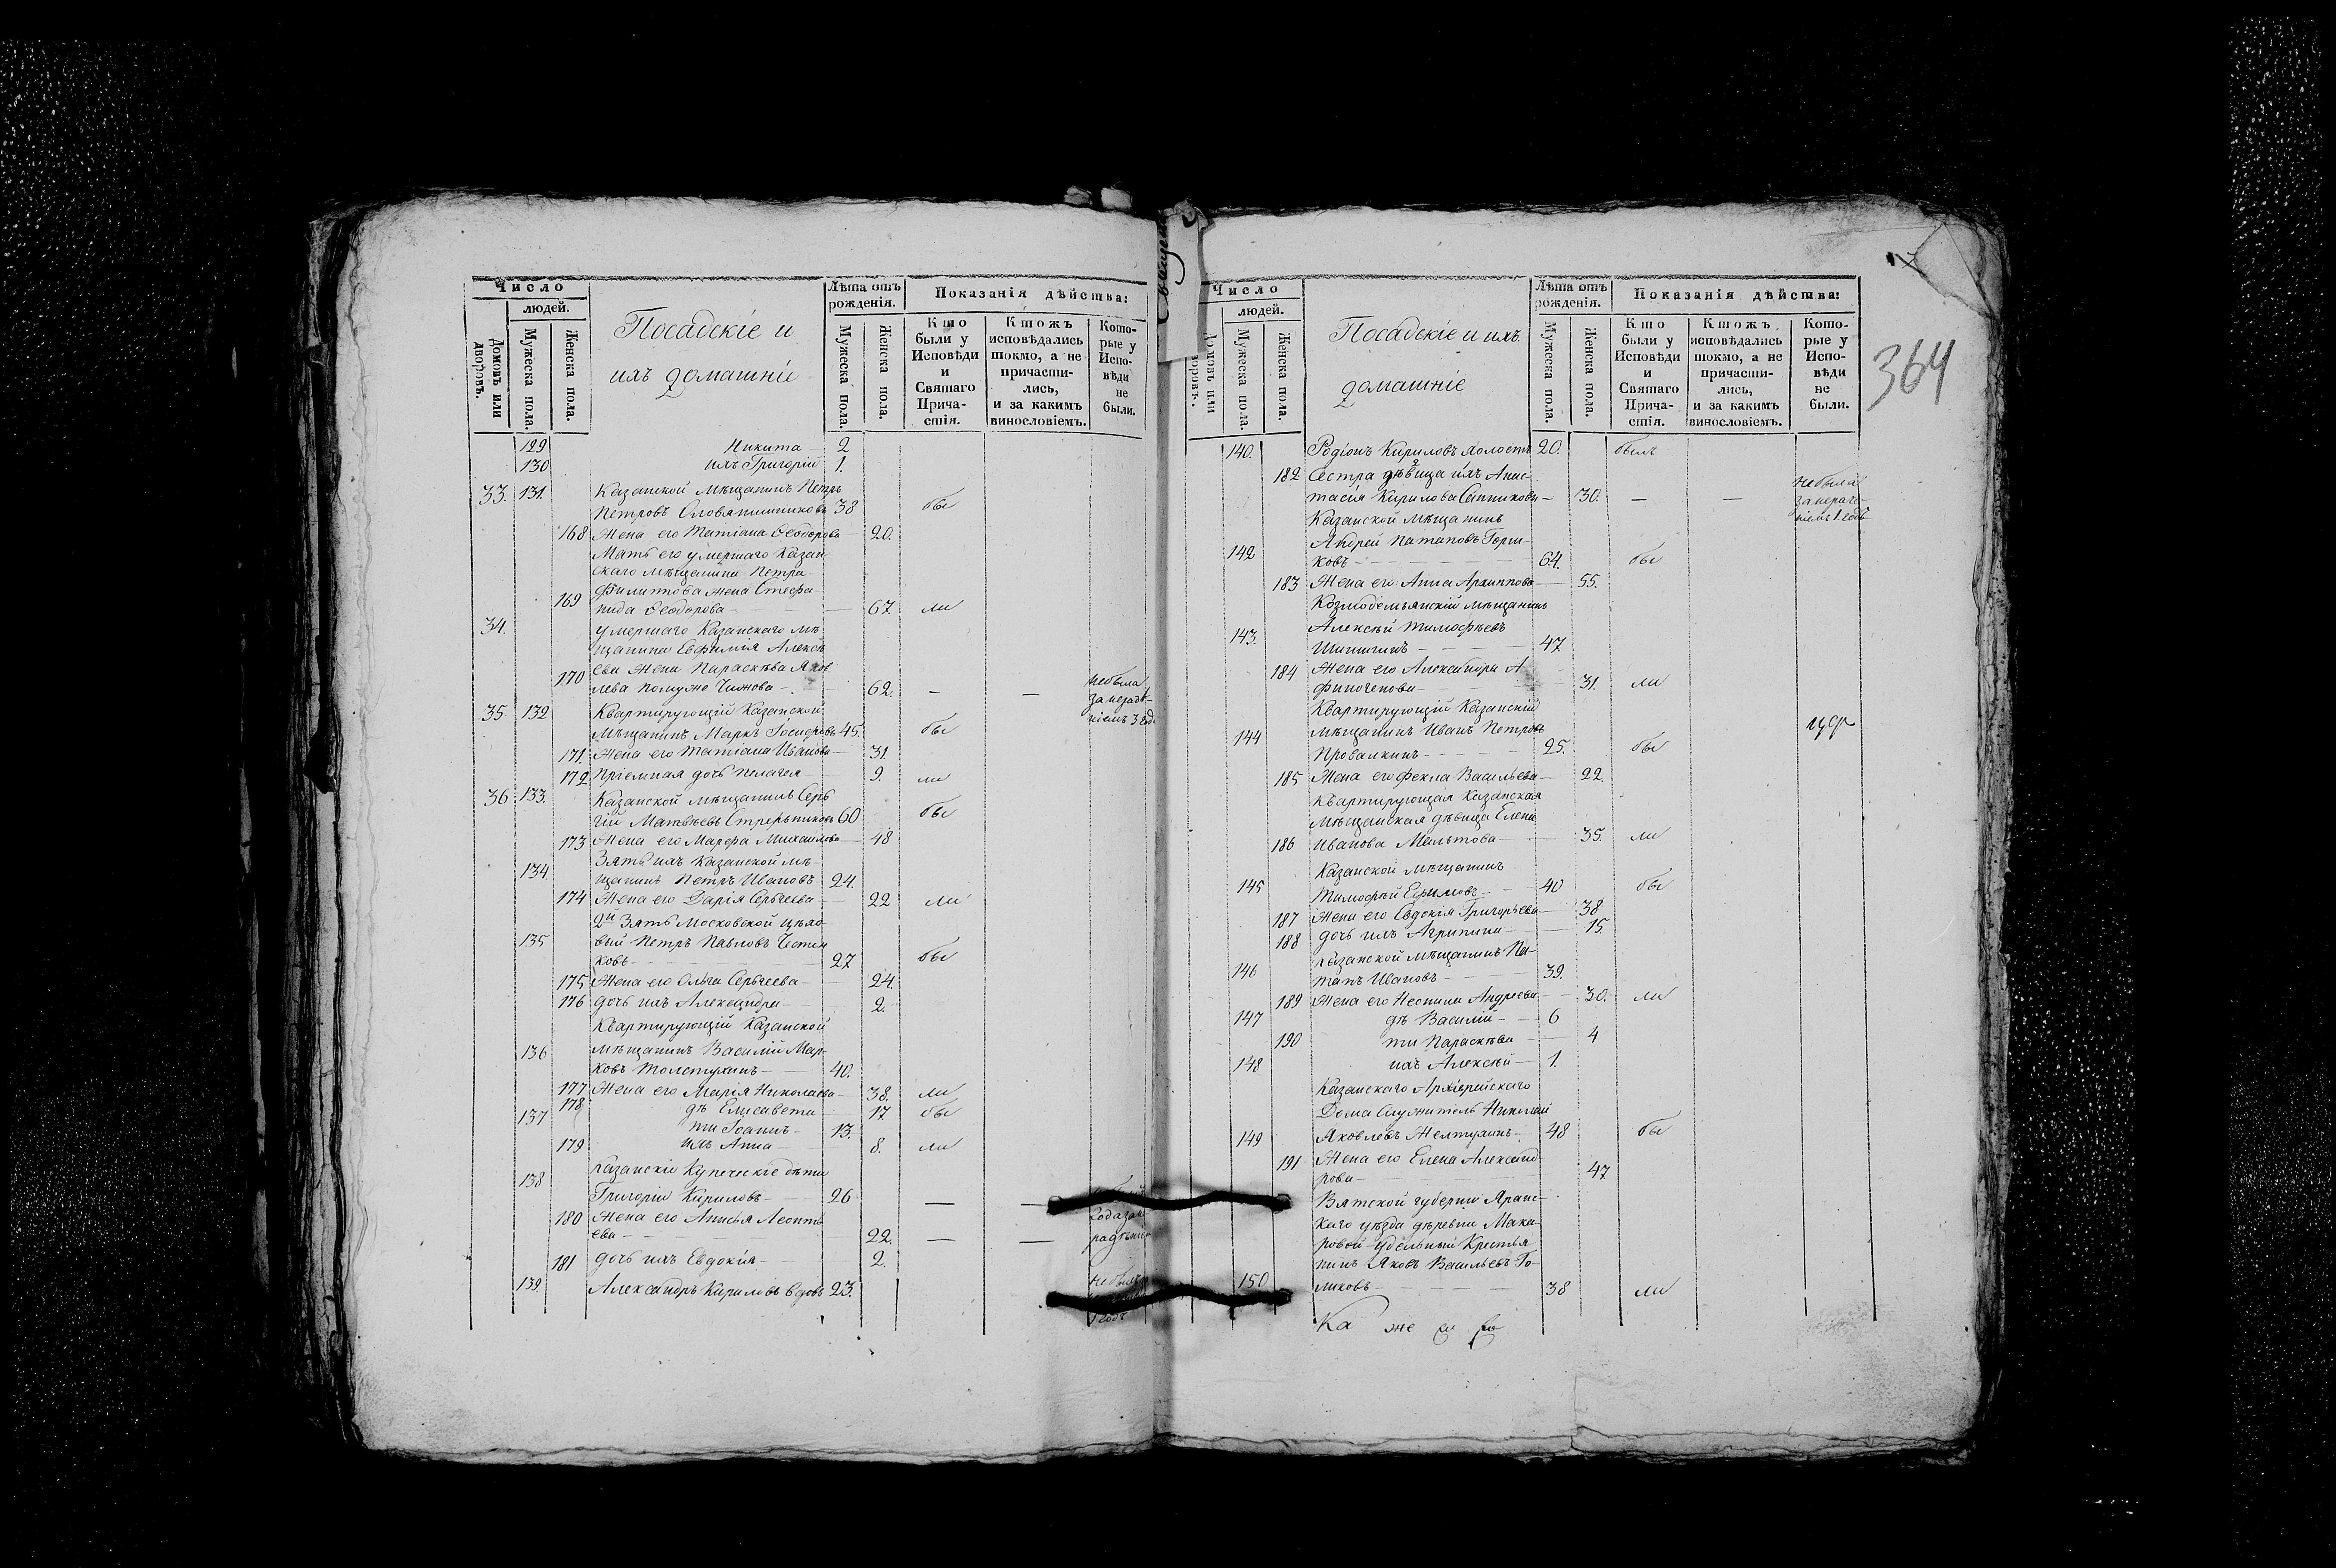 Число
людей.
Домовъ или дворовъ.
Мужеска пола.
Женска пола.
Посадскіе и
ихъ домашніе
Лѣта отъ рожденія.
Мужеска пола.
Женска пола.
Показанія дѣйства:
Кто были у Исповѣди и Святаго Прича- стія.
Ктожъ исповѣдались токмо, а не причасти- лись, и за какимъ винословіемъ.
Кото- рые у Испо- вѣди не были.
129 Никита 2
130 ихъ Григорій 1.
33. 131. Казанской мѣщанинъ Петръ
Петровъ Оловянишниковъ 38 бы
168 Жена его Татіана Ѳеодорова 20.
Мать его умершаго Казан-
скаго мѣщанина Петра
Филиппова жена Стефа-
169 нида Ѳеодорова 67. ли
34. умершаго Казанскаго мѣ
щанина Евфимія Алексѣ
ева жена Параскѣва Яков
170 лева по мужѣ Чижова 62. — — не была
за нерадѣ-
ніемъ 3 год.
35 132 Квартирующій Казанской
мѣщанинъ Маркъ Іосифовъ 45. бы
171. Жена его Татіана Иванова 31.
172 Пріемная дочь Пелагея 9. ли
36 133. Казанской мѣщанинъ Серь
гій Матвѣевъ Стрельниковъ 60 бы
173 Жена его Марфа Михайлова 48
Зять ихъ Казанской мѣ-
134. щанинъ Петръ Ивановъ 24.
174 Жена его Дарія Сергѣева 22 ли
2й Зять Московской цѣхо-
135 вый Петръ Павловъ Чистя
ковъ 27 бы
175 Жена его Ольга Сергѣева 24.
176 дочь ихъ Александра 2.
Квартирующій Казанской
136 мѣщанинъ Василій Мар-
ковъ Толстухинъ 40.
177 Жена его Марія Николаева 38. ли
178 дѣ Елисавета 17 бы
137 ти Іоаннъ 13.
179 ихъ Анна 8. ли
Казанскіе Купеческіе дѣти
138 Григорій Кириловъ 26 —
180 Жена его Анисья Леонть
ева 22. — —
181 дочь ихъ Евдокія 2.
139. Александръ Кириловъ вдовъ 23.
Число
людей.
Мужеска пола.
Женска пола.
Посадскіе и ихъ
домашніе
Лѣта отъ рожденія.
Мужеска пола.
Женска пола.
Показанія дѣйства:
Кто были у Исповѣди и Святаго Прича- стія.
Ктожъ исповѣдались токмо, а не причасти- лись, и за какимъ винословіемъ.
Кото- рые у Испо- вѣди не были.
364
140. Родіонъ Кириловъ холостъ 20. былъ
182 Сестра дѣвица ихъ Анас-
тасія Кирилова 30. — — не была
за нераде-
ніемъ 1 годъ
Казанской мѣщанинъ
142 Андрей Патаповъ Горш-
ковъ 64. бы
183 Жена его Анна Архиппова 55.
Козмодемьянскій мѣщанинъ
143. Алексѣй Тимофѣевъ
Шишкинъ 47
184 Жена его Александра А
финогенова 31. ли
Квартирующій Казанскій
144 мѣщанинъ Иванъ Петровъ
Провалкинъ 25. бы
185 Жена его Фекла Васильева 22.
Квартирующая Казанская
мѣщанская дѣвица Елена
186 Иванова Мальтова 35. ли
Казанской мѣщанинъ
145 Тимофѣй Ефимовъ 40 бы
187 Жена его Евдокія Григорьева 38
188 дочь ихъ Агрипина 15.
Казанской мѣщанинъ Па-
146 тапъ Ивановъ 39.
189 Жена его Неонила Андреева 30. ли
147 дѣ Василій 6
190 ти Параскѣва 4
148 ихъ Алексѣй 1.
Казанскаго Архіерейскаго
Дома служитель Николай
149 Яковлевъ Желтухинъ 48 бы
191 Жена его Елена Александ-
рова 47
Вятской губерніи Яранс-
каго уѣзда деревни Мака-
ровой удѣльный Крестья
нинъ Яковъ Васильевъ Го-
150 ликовъ 38 ли